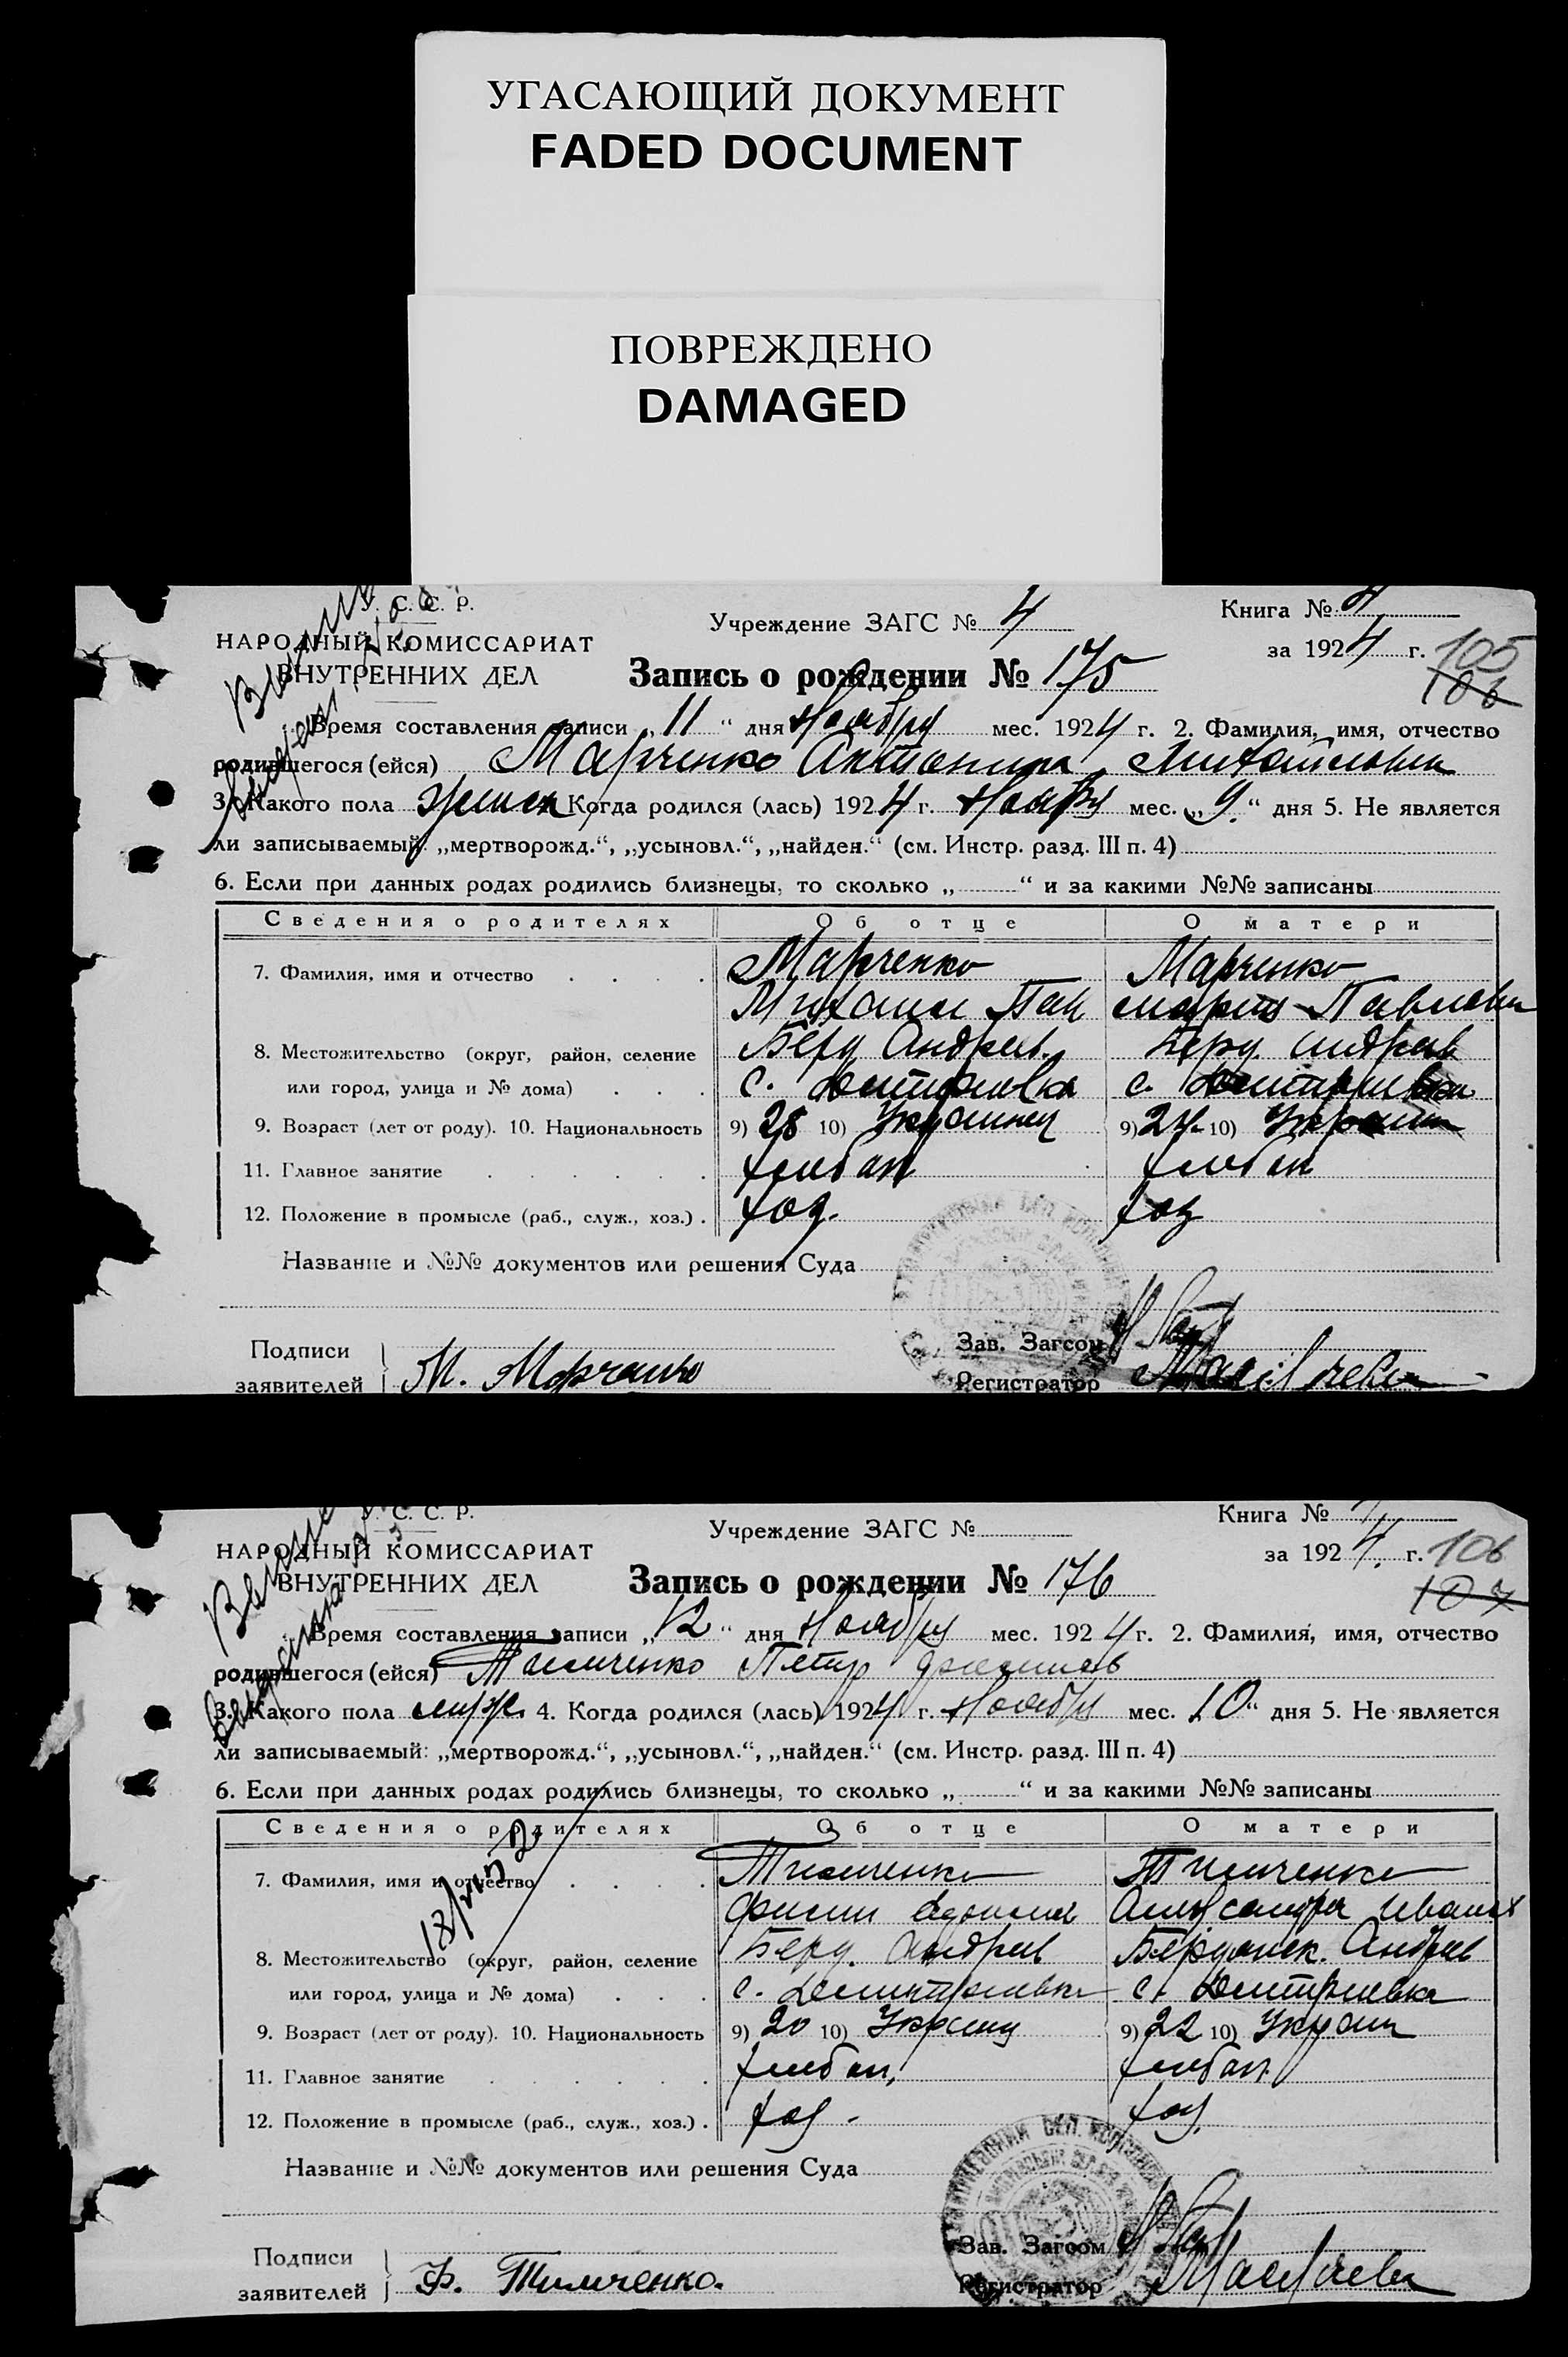 УГАСАЮЩИЙ ДОКУМЕНТ
FADED DOCUMENT
ПОВРЕЖДЕНО
DAMAGED
У. С. С. Р.
НАРОДНЫЙ КОМИССАРИАТ
ВНУТРЕННИХ ДЕЛ
Учреждение ЗАГС № 4
Книга № 4
за 1924 г.
105
106
Запись о рождении № 175
Время составления записи „11“ дня Ноября мес. 1924 г. 2. Фамилия, имя, отчество
родившегося (ейся) Марченко Антонина Михайловна
3. Какого пола женск Когда родился (лась) 1924 г. Ноября мес. „9.“ дня 5. Не является
ли записываемый: „мертворожд.“, „усыновл.“, „найден.“ (см. Инстр. разд. III п. 4)
6. Если при данных родах родились близнецы, то сколько „ “ и за какими №№ записаны
Сведения о родителях Об отце О матери
7. Фамилия, имя и отчество Марченко Марченко
Михаил Пав Мария Павловна
8. Местожительство (округ, район, селение Берд Андреев. Берд Андреев
или город, улица и № дома) с. Дмитриевка с. Дмитриевка
9. Возраст (лет от роду). 10. Национальность 9) 28 10) Украинец 9) 24 10) Украин
11. Главное занятие хлебоп хлебоп
12. Положение в промысле (раб., служ., хоз.) хоз. хоз
Название и №№ документов или решения Суда
Подписи
заявителей М. Марченко
Зав. Загсом
Регистратор
У. С. С. Р.
НАРОДНЫЙ КОМИССАРИАТ
ВНУТРЕННИХ ДЕЛ
Учреждение ЗАГС №
Книга №
за 1924. г.
106
107
Запись о рождении № 176
Время составления записи „12“ дня Ноября мес. 1924 г. 2. Фамилия, имя, отчество
родившегося (ейся) Тимченко Петр
3. Какого пола муж. 4. Когда родился (лась) 1924 г. Ноября мес. „10“ дня 5. Не является
ли записываемый: „мертворожд.“, „усыновл.“, „найден.“ (см. Инстр. разд. III п. 4)
6. Если при данных родах родились близнецы, то сколько „ “ и за какими №№ записаны
Сведения о родителях Об отце О матери
7. Фамилия, имя и отчество Тимченко Тимченко
Александра Иванов
8. Местожительство (округ, район, селение Берд. Андреев Бердянск. Андреев
или город, улица и № дома) с. Дмитриевка с. Дмитриевка
9. Возраст (лет от роду). 10. Национальность 9) 20 10) Украинц 9) 22 10) Украин
11. Главное занятие хлебоп. хлебоп.
12. Положение в промысле (раб., служ., хоз.) хоз. хоз.
Название и №№ документов или решения Суда
Подписи
заявителей Ф. Тимченко.
Зав. Загсом
Регистратор